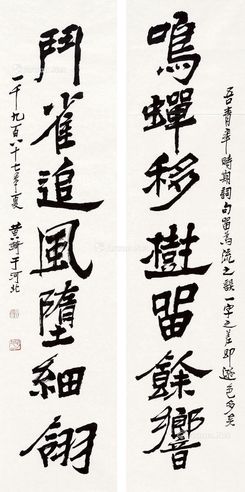 吾青年時期詞句留為流之談一字之差即遜色多矣
鳴蟬移樹留餘響
鬥雀追風墮細翎
一千九百八十七年夏 黃綺于河北